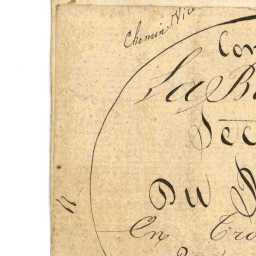 Chemin Vic
Con
La B
Sec
Du
En Tro